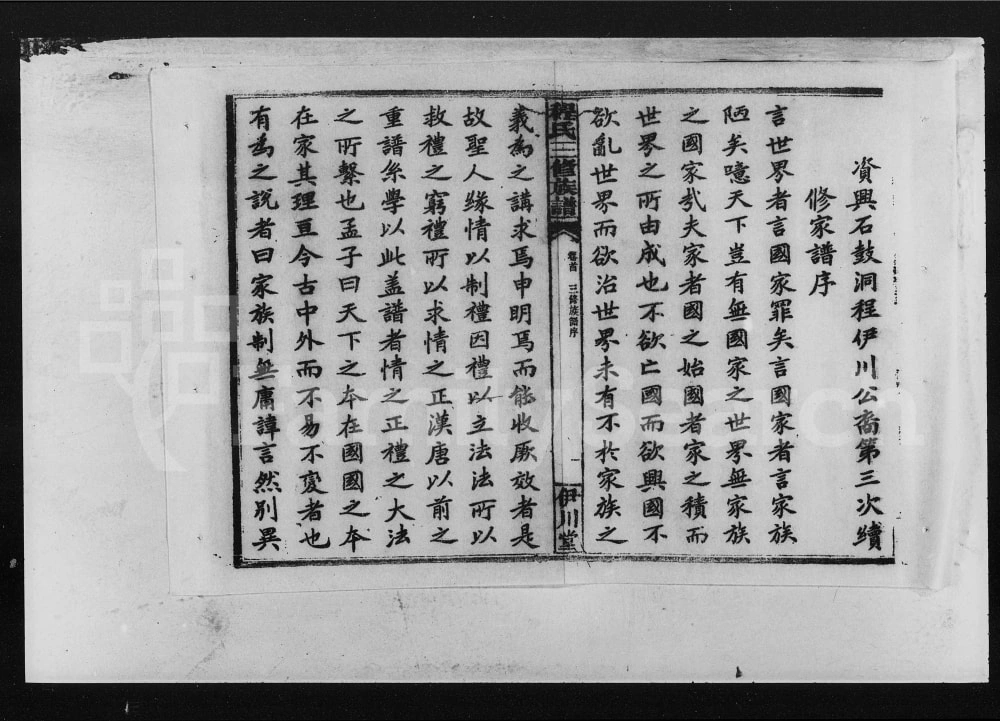 資興石鼓洞程伊川公裔第三次續
修家譜序
言世界者言國家罪矣言國家者言家族
陋矣噫天下豈有無國家之世界無家族
之國家哉夫家者國之始國者家之積而
世界之所由成也不欲亡國而欲興國不
欲亂世界而欲治世界未有不於家族之
程氏三修族譜
卷首 三修族譜序
一
伊川堂
義為之講求焉申明焉而能收厥效者是
故聖人緣情以制禮因禮以立法法所以
救禮之窮禮所以求情之正漢唐以前之
重譜系學以此盖譜者情之正禮之大法
之所繫也孟子曰天下之本在國國之本
在家其理亘今古中外而不易不變者也
有為之說者曰家族制無庸諱言然別異
FamilySearch